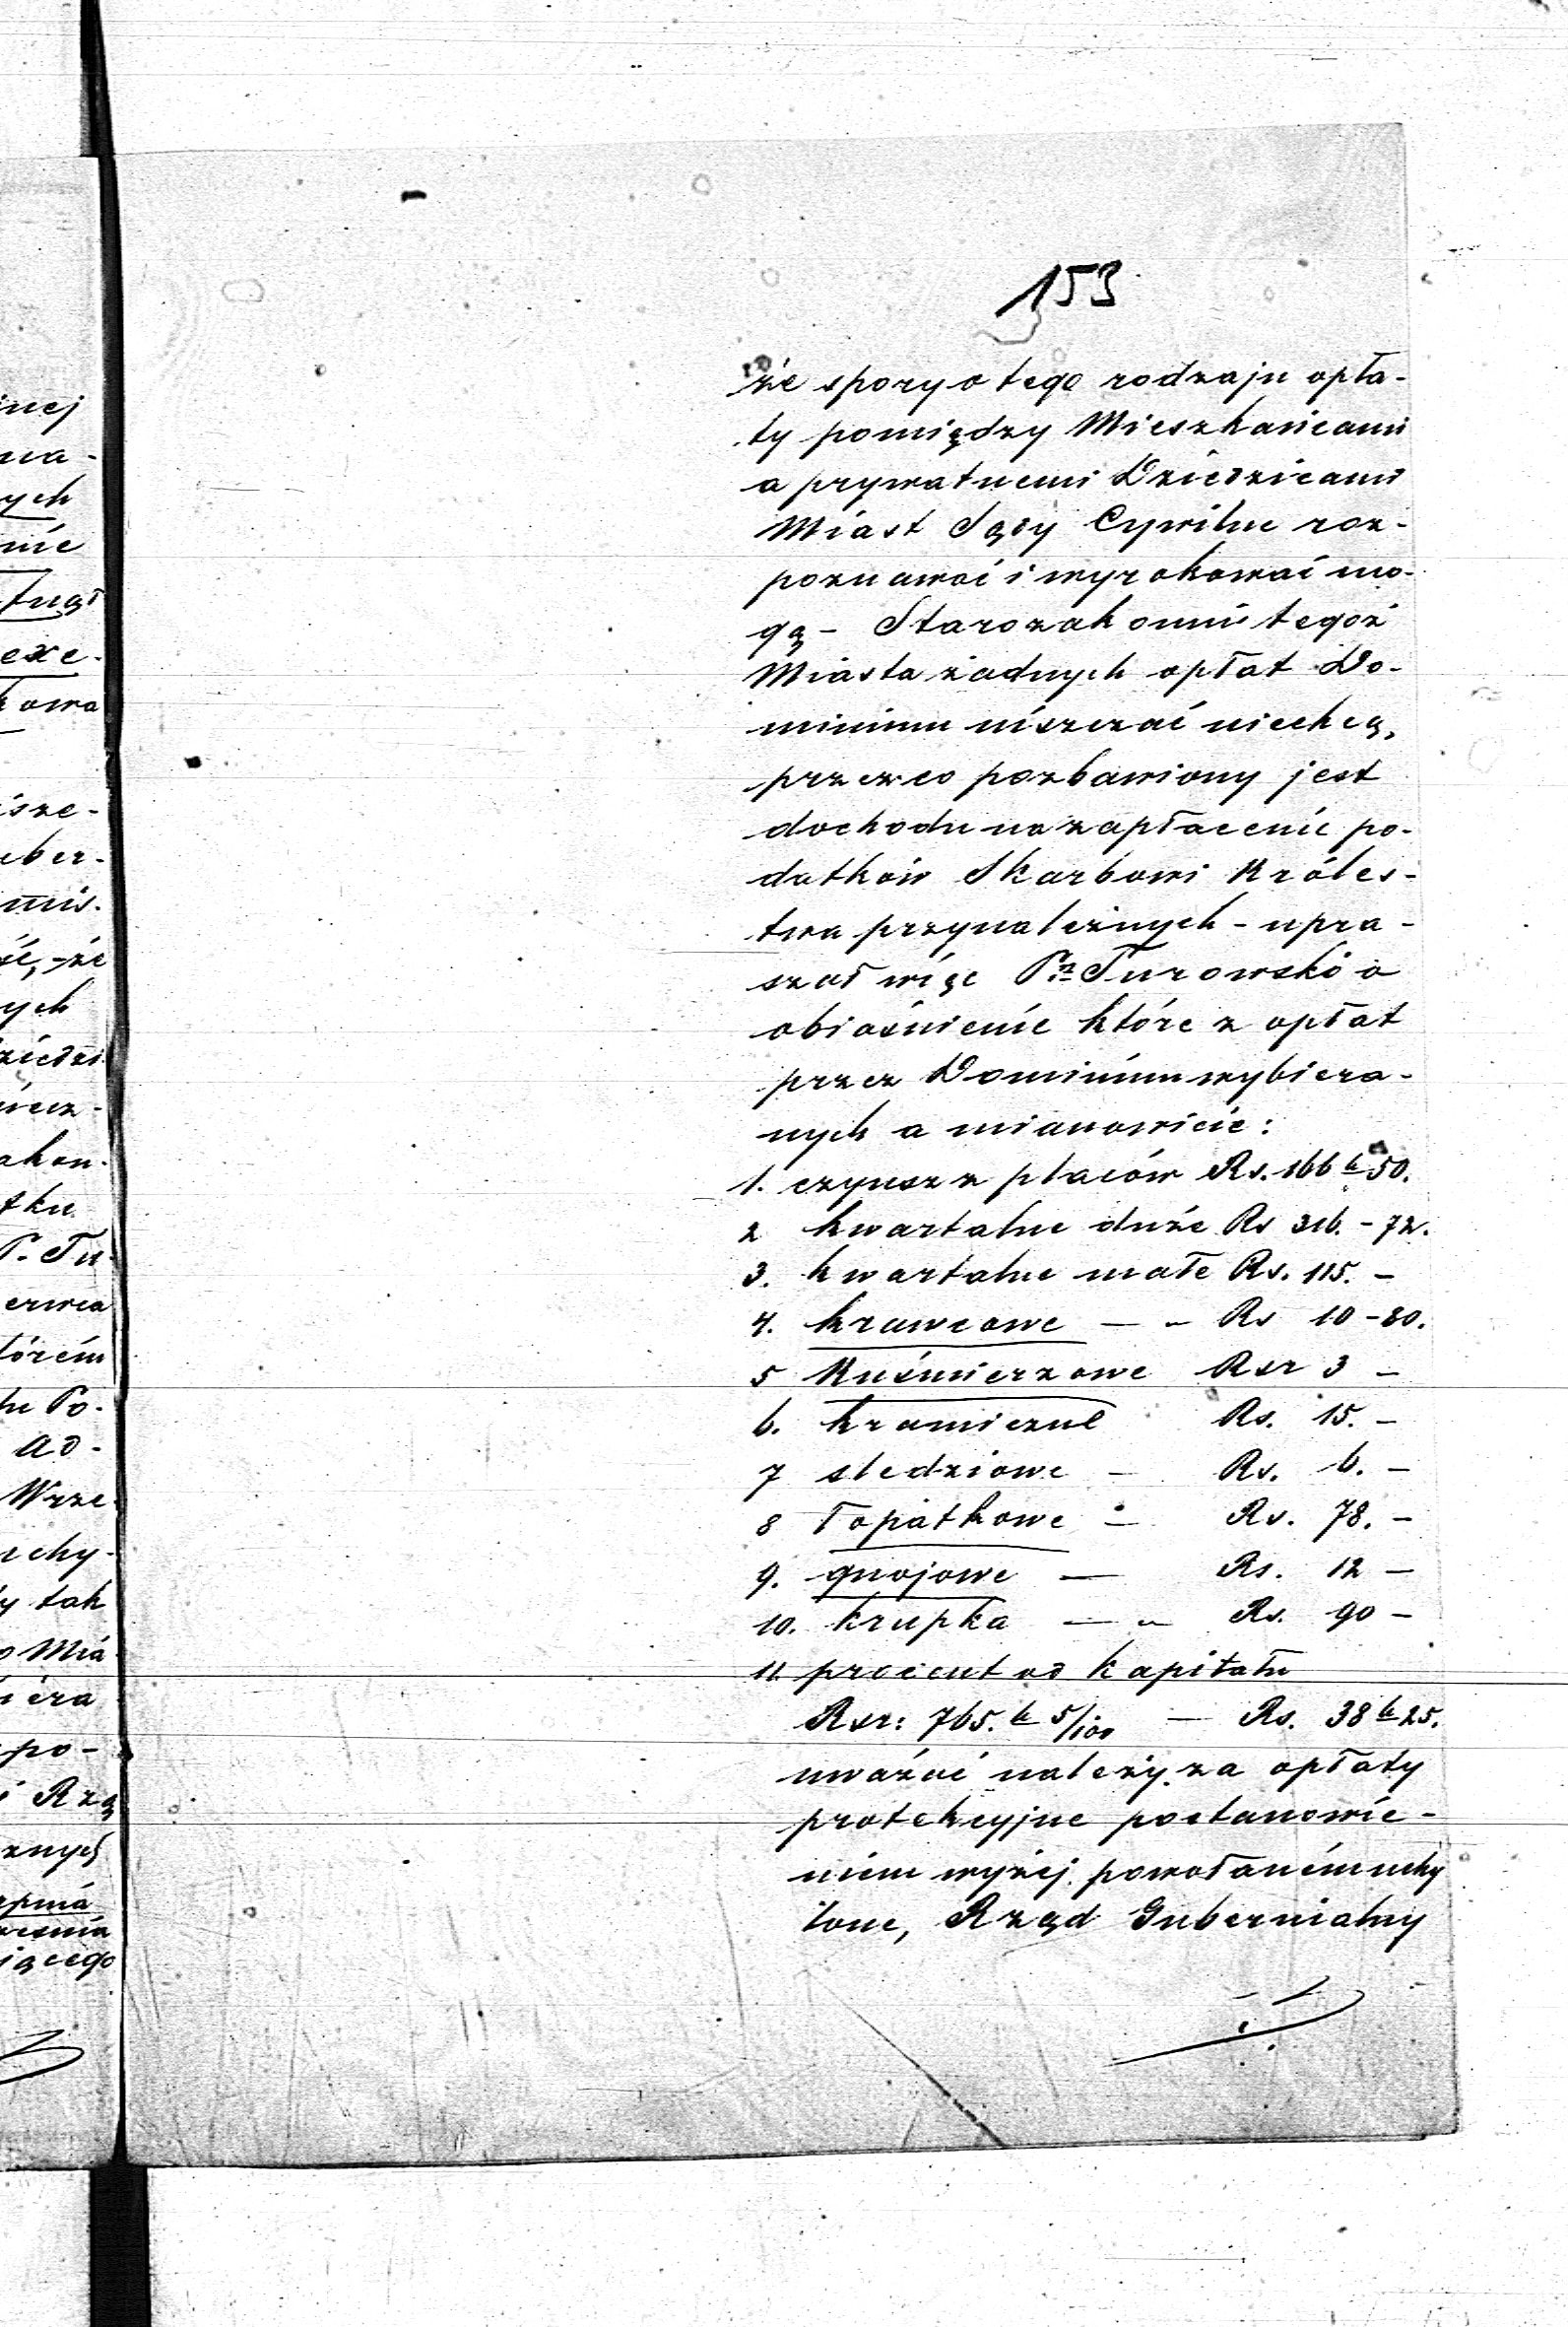 153
że spory o tego rodzaju opła-
ty pomiędzy Mieszkańcami
a prywatnemi Dziedzicami
Miast Sądy Cywilne roz-
poznawać i wyrokować mo-
gą - Starozakonni tegoż
Miasta żadnych opłat Do-
minium uiszczać niechcą,
przezco pozbawiony jest
dochodu na zapłacenie po-
datków Skarbowi Króles-
twa przynależnych - upra-
szał więc Pn Turowski o
obiaśnienie które z opłat
przez Dominium wybiera-
nych a mianowicie:
1. czynsz z placów Rs. 166 k 50.
2 kwartalne duże Rs 316. - 72.
3. kwartalne małe Rs. 115. -
4. krawcowe — - Rs 10 - 80.
5 Kuśmierzowe Rsr 3 -
6. kramiczne Rs. 15. -
7 sledziowe - Rs. 6. -
8 łopatkowe - Rs. 78. -
9. gnojowe — Rs. 12 -
10. krupka — - Rs. 90 -
11. procent od kapitału
Rsr: 765. k 5/100 — Rs. 38 k 25.
uważać należy za opłaty
protekcyjne postanowie-
niem wyżej powołaném uchy
lone, Rząd Gubernialny
inej
wa-
ych
nie
exe-
kowa
isze-
uber-
mis.
że
ych
akon-
tku
P. Tu-
erwca
tórém
Po-
ad-
Wrze-
uchy-
y tak
o Mia
iera
po-
i Rzą
znych
jącego